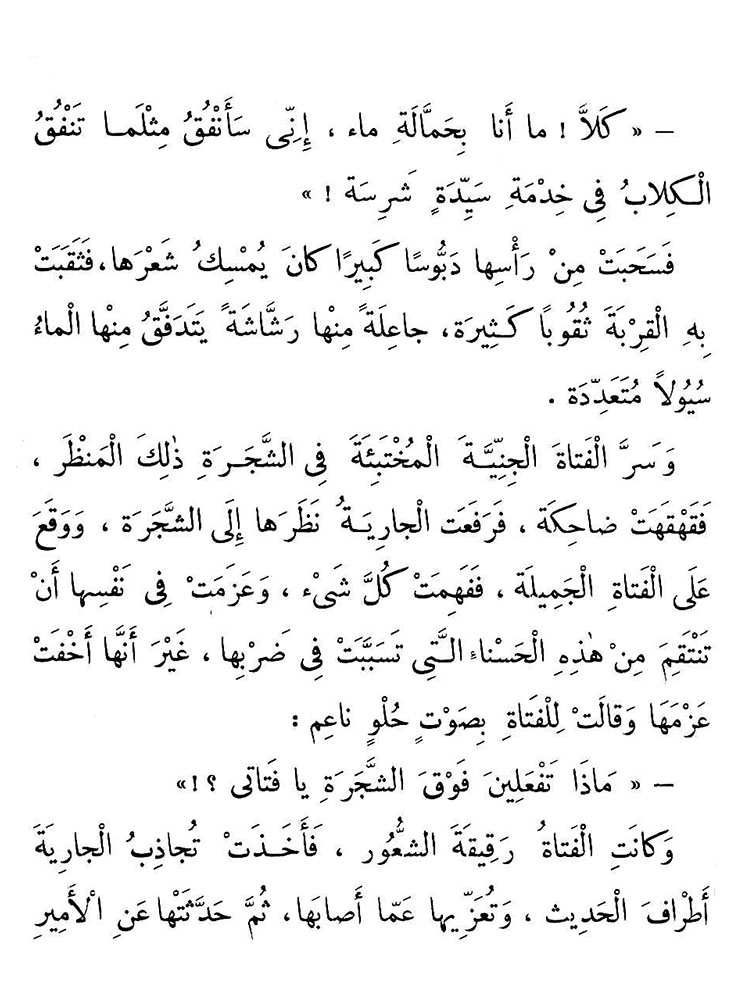 – « كَلاَّ ! ما أَنا بِحَمَّالَةِ ماء ، إِنِّى سَأَنْفُقُ مِثْلَمـا تَنْفُقُ
الْـكِلابُ فِى خِدْمَةِ سَيِّدَةٍ شَرِسَة ! »
فَسَحَبَتْ مِنْ رَأْسِها دَبُّوسًا كَبِيرًا كانَ يُمْسِكُ شَعْرَها، فَثَقَبَتْ
بِهِ الْقِرْبَةَ ثُقُوباً كَثِيرَة، جاعِلَةً مِنْها رَشَّاشَةً يَتَدَفَّقُ مِنْها الْماءُ
سُيُولاً مُتَعَدِّدَة .
وَسَرَّ الْفَتاةَ الْجِنِّيَّـةَ الْمُخْتَبِئَةَ فِى الشَّجَـرَةِ ذٰلِكَ الْمَنْظَر ،
فَقَهْقَهَتْ ضاحِكَة ، فَرَفَعَت الْجارِيَـةُ نَظَرَها إِلَى الشَّجَرَة ، وَوَقَعَ
عَلَى الْفَتاةِ الْجَمِيلَة ، فَفَهِمَتْ كُلَّ شَىْء ، وَعَزَمَتْ فِى نَفْسِها أَنْ
تَنْتَقِمَ مِنْ هٰذِهِ الْحَسْناءِ الـَّتِى تَسَبَّبَتْ فِى ضَرْبِها ، غَيْرَ أَنَّها أَخْفَتْ
عَزْمَهَا وَقالَتْ لِلْفَتاةِ بِصَوْتٍ حُلْوٍ ناعِم :
– « مَاذَا تَفْعَلِينَ فَوْقَ الشَّجَرَةِ يا فَتاتى ؟! »
وَكانَتِ الْفَتاةُ رَقِيقَةَ الشُّعُور ، فَأَخَـذَتْ تُجاذِبُ الْجارِيَةَ
أَطْرافَ الْحَدِيث ، وَتُعَزِّيها عَمّا أَصابَها، ثُمَّ حَدَّثَتْها عَنِ الْأَمِيرِ